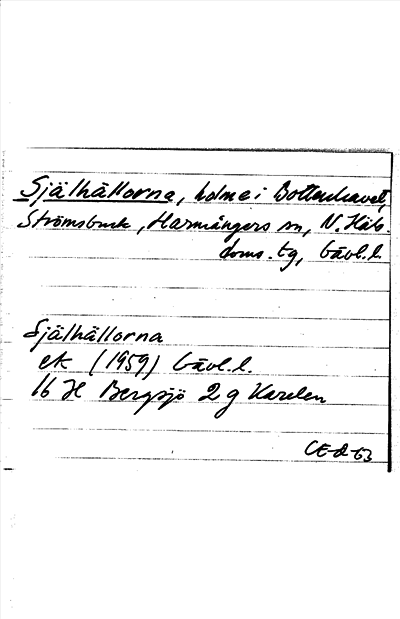 Själhällorna, holme i Bottenhavet,
Strömsbruk, Harmångers sn, N. Häls.
doms. tg, Gävl. l.
Själhällorna
ek (1959) Gävl. l.
16 H Bergsjö 2 g Karelen